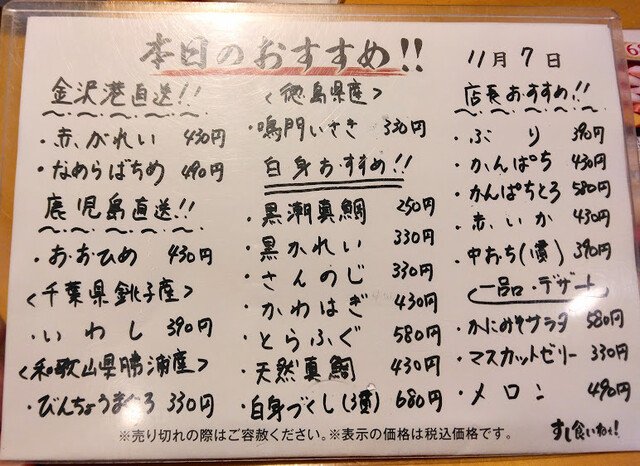 本日のおすすめ!!
11月7日
金沢港直送!!
・赤がれい 430円
・なめらばちめ 490円
鹿児島直送!!
・おおひめ 430円
<千葉県銚子産>
・いわし 390円
<和歌山県勝浦産>
・びんちょうまぐろ 330円
<徳島県産>
・鳴門いさき 330円
白身おすすめ!!
・黒潮真鯛 250円
・黒かれい 330円
・さんのじ 330円
・かわはぎ 430円
・とらふぐ 580円
・天然真鯛 430円
・白身づくし(3貫) 680円
店長おすすめ!!
・ぶり 390円
・かんぱち 430円
・かんぱちとろ 580円
・赤いか 430円
・中おち(1貫) 390円
一品・デザート
・かにみそサラダ 580円
・マスカットゼリー 330円
・メロン 490円
すし食いねぇ!
※売り切れの際はご容赦ください。※表示の価格は税込価格です。